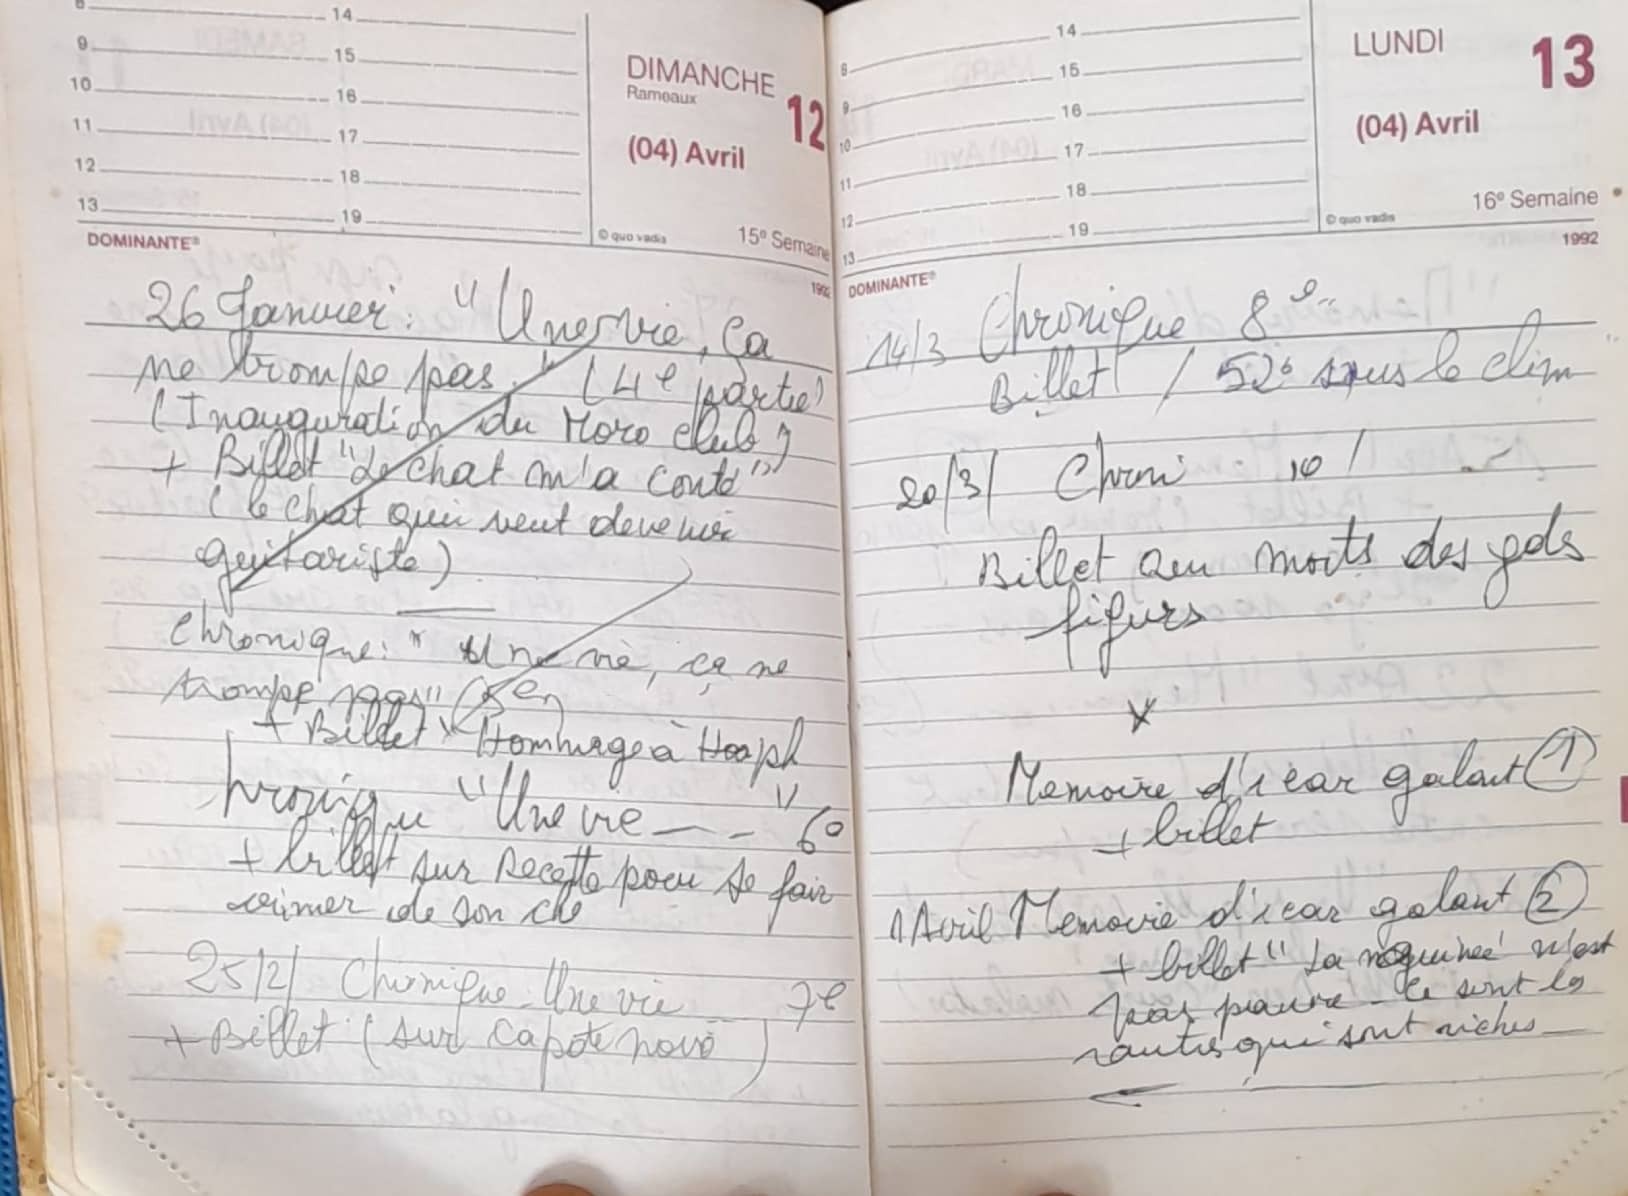 8 14
9 15
10 16
11 17
12 18
13 19
DIMANCHE
Rameaux
12
(04) Avril
© quo vadis
15e Semaine
DOMINANTE®
1992
26 Janvier : "Une vie, ça
ne trompe pas." (4e partie)
(Inauguration du Moro club)
+ Billet "Le chat m'a conté"
(le chat qui veut devenir
guitariste)
Chronique : "Une vie, ça ne
trompe pas" (5e)
+ Billet "Hommage à
"Une vie --- " 6e
+ billet sur Recette pour se fair
aimer de son
25/2/ Chronique : Une vie 7e
+ Billet (sur capote nova)
8 14
9 15
10 16
11 17
12 18
13 19
LUNDI
13
(04) Avril
© quo vadis
16e Semaine
DOMINANTE®
1992
14/3 Chronique 8e
Billet / 52° sous le clim
20/3/ Chroni 10 /
Billet aux morts des
Memoire d'icar galant 1
+ billet
1 Avril Memoire d'icar galant 2
+ billet "La n'est
pas pauvre. Ce sont les
autres qui sont riches